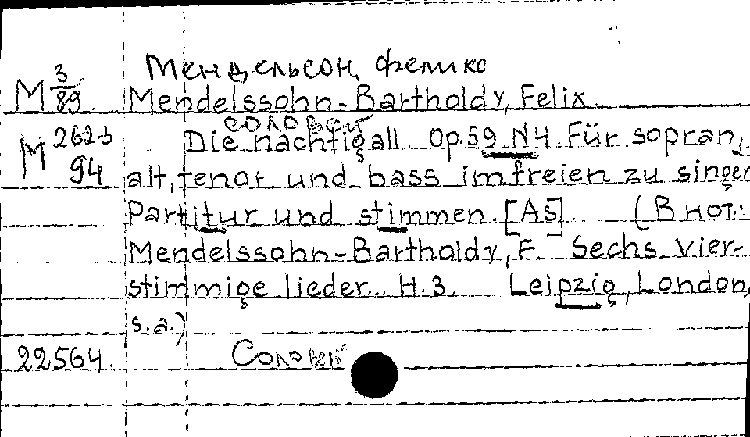 Мендельсон, Феликс
М 3/89 Mendelssohn-Bartholdy, Felix.
соловей
М 262-3/94 Die nachtigall Op.59 N4. Für sopran,
alt, tenor und bass im freien zu singen
Partitur und stimmen. [As] (В нот.:
Mendelssohn-Bartholdy, F. Sechs vier-
stimmige lieder. H.3. Leipzig, London,
s.a.)
22564 Соловей